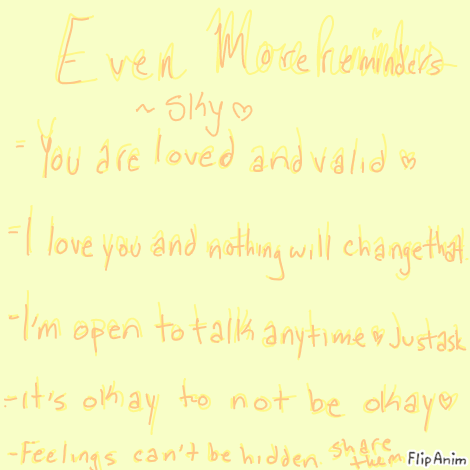 Even More reminders
~ Sky ♡
- You are loved and valid ♡
- I love you and nothing will change that
- I'm open to talk anytime ♡ Just ask
- it's okay to not be okay ♡
- Feelings can't be hidden share them
FlipAnim